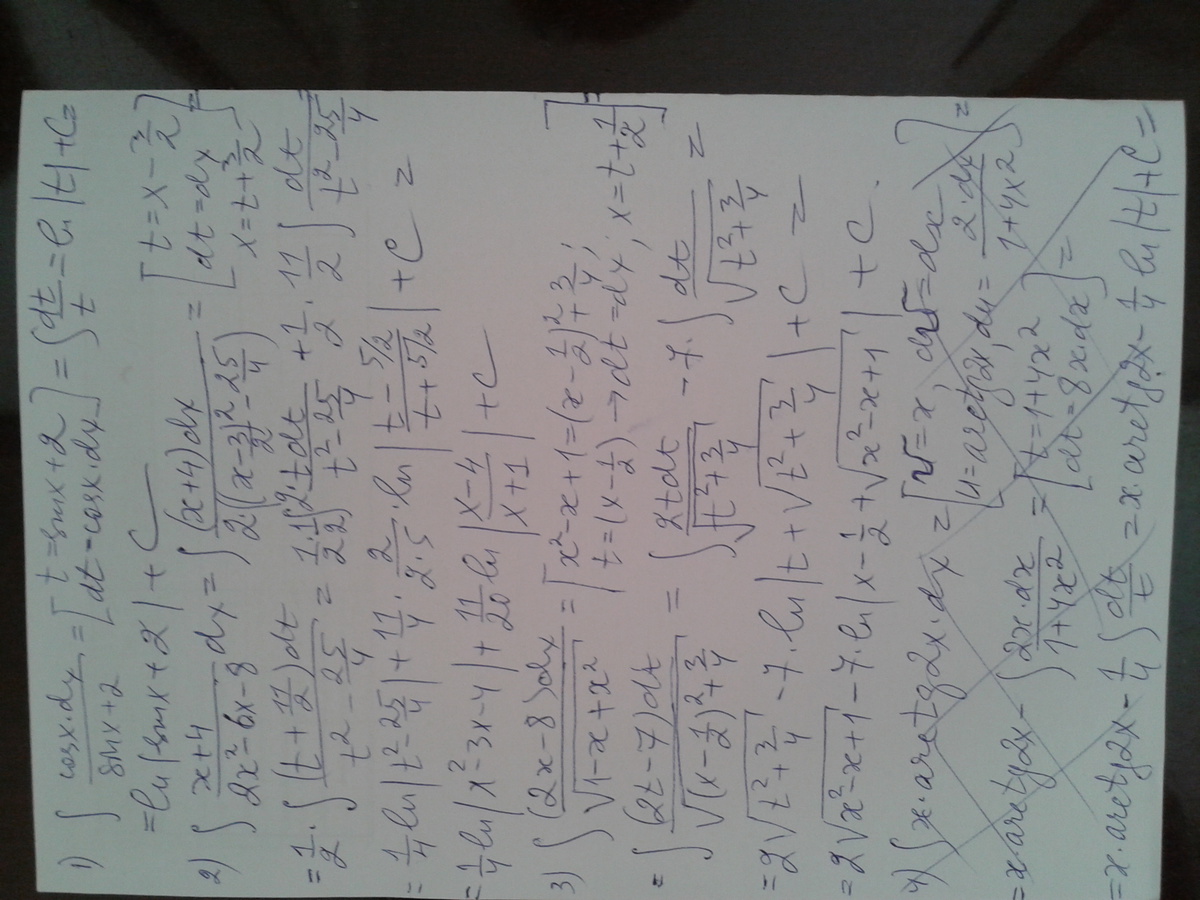 1) ∫ cosx·dx / sinx+2 = [t=sinx+2 dt=cosx·dx] = ∫ dt/t = ln|t|+C=
= ln|sinx+2|+C
2) ∫ x+4 / 2x²-6x-8 dx = ∫ (x+4)dx / 2·((x-3/2)²-25/4) = [t=x-3/2 dt=dx x=t+3/2] =
= 1/2 · ∫ (t+11/2)dt / t²-25/4 = 1/2·1/2 ∫ 2·tdt / t²-25/4 + 1/2·11/2 ∫ dt / t²-25/4 =
= 1/4 ln|t²-25/4| + 11/4 · 2/2·5 · ln|t-5/2 / t+5/2| + C =
= 1/4 ln|x²-3x-4| + 11/20 ln|x-4 / x+1| + C
3) ∫ (2x-8)dx / √1-x+x² = [x²-x+1=(x-1/2)²+3/4; t=(x-1/2)→dt=dx; x=t+1/2] =
= ∫ (2t-7)dt / √(x-1/2)²+3/4 = ∫ 2tdt / √t²+3/4 - 7·∫ dt / √t²+3/4 =
= 2√t²+3/4 - 7·ln|t+√t²+3/4| + C =
= 2√x²-x+1 - 7·ln|x-1/2+√x²-x+1| + C.
4) ∫ x·arctg2x·dx = [v=x, dv=dx u=arctg2x, du= 2·dx / 1+4x²] =
= x·arctg2x - ∫ 2x·dx / 1+4x² = [t=1+4x² dt=8x·dx] =
= x·arctg2x - 1/4 ∫ dt/t = x·arctg2x - 1/4 ln|t|+C=